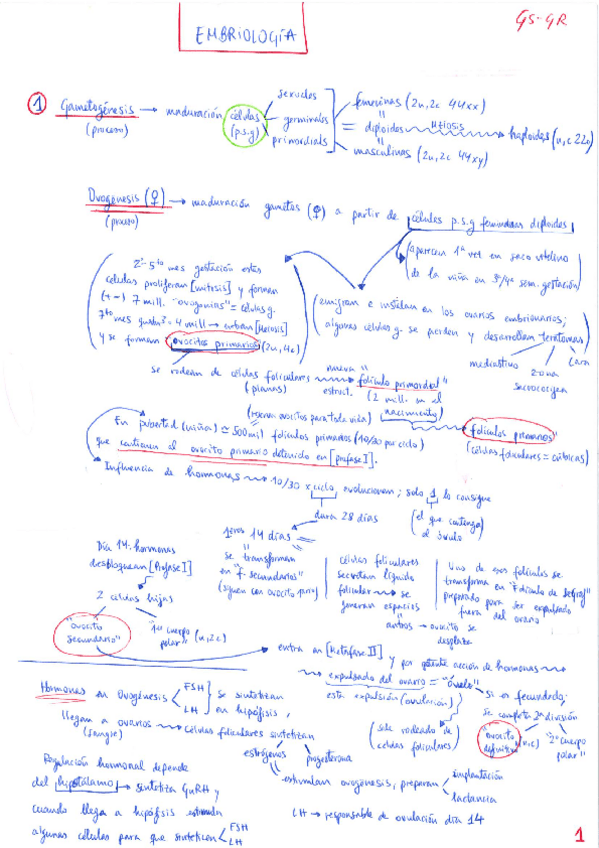 EMBRIOLOGÍA
GS-GR
1 Gametogénesis → maduración células sexuales femeninas (2n, 2c 44xx)
(proceso) (p.s.g) germinales = diploides Meiosis haploides (n, c 22)
primordiales masculinas (2n, 2c 44xy)
Ovogénesis (♀) → maduración gametos (♀) a partir de células p.s.g femeninas diploides
(proceso)
aparecen 1ª vez en saco vitelino
de la niña en 3ª/4ª sem. gestación
2º-5to mes gestación estas
células proliferan [mitosis] y forman
(+-) 7 mill. "ovogonias" = células g.
7to mes 4 mill → entran [Meiosis]
y se forman ovocitos primarios (2n, 4c)
emigran e instalan en los ovarios embrionarios;
algunas células g. se pierden y desarrollan teratomas
mediastino zona sacrococígea cara
se rodean de células foliculares nueva "folículo primordial"
(planas) estruct. (2 mill. en el
(reserva ovocitos para toda vida) nacimiento)
En pubertad (niñas) ≃ 500 mil folículos primarios (10/30 por ciclo)
que contienen al ovocito primario detenido en [profase I].
"folículos primarios"
(células foliculares = cúbicas)
Influencia de hormonas → 10/30 x ciclo evolucionan; solo 1 lo consigue
dura 28 días (el que contenga
al óvulo)
Día 14: hormonas
desbloquean [Profase I]
2 células hijas
"ovocito
secundario"
"1er cuerpo
polar" (n, 2c)
1eros 14 días
se transforman
en "F. secundarios"
(siguen con ovocito prim)
células foliculares
secretan líquido
folicular → se
generan espacios
antros → ovocito se
desplaza
Uno de esos folículos se
transforma en "Folículo de
preparado para ser expulsado
fuera del ovario
entra en [Metafase II] y por potente acción de hormonas
expulsado del ovario = "óvulo"
esta expulsión (ovulación)
(sale rodeado de
células foliculares)
si es fecundado:
se completa 2ª división
"ovocito
definitivo" (n, c)
"2º cuerpo
polar"
Hormonas en Ovogénesis FSH Se sintetizan
LH en hipófisis,
llegan a ovarios → células foliculares sintetizan
(sangre)
estrógenos progesterona
estimulan ovogénesis, preparan implantación
lactancia
Regulación hormonal depende
del hipotálamo → sintetiza GnRH y
cuando llega a hipófisis estimula
algunas células para que sinteticen FSH
LH
LH → responsable de ovulación día 14
1